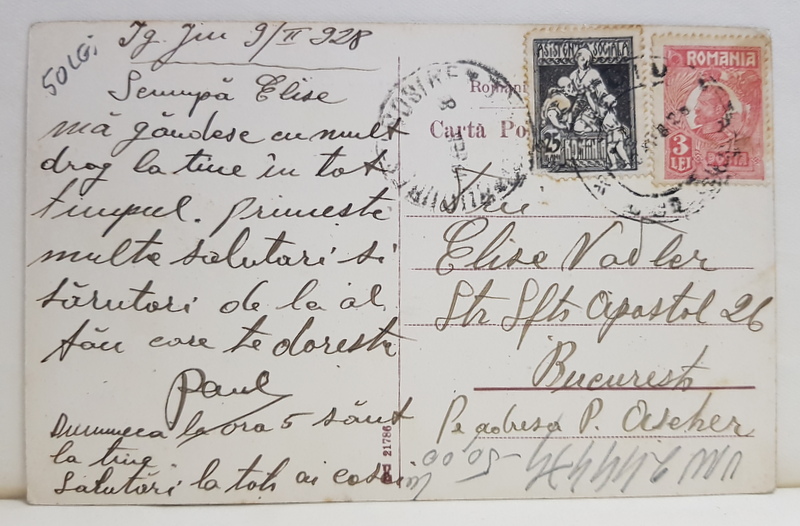 50 LEI
Tg. Jiu 9/II 928
Scumpă Elise
mă gândesc cu mult
drag la tine în tot
timpul. Primește
multe salutari si
sărutari de la al
tău care te doreste
Paul
Dumineca la ora 5 sânt
la tine
Salutări la toti ai
ASISTENȚA SOCIALA
25
BANI
ROMANIA
3
LEI
POSTA
Români
Carta Po
Elise Vadler
Str Sfti Apostol 26
Bucuresti
Pe adresa P. Ascher
21786